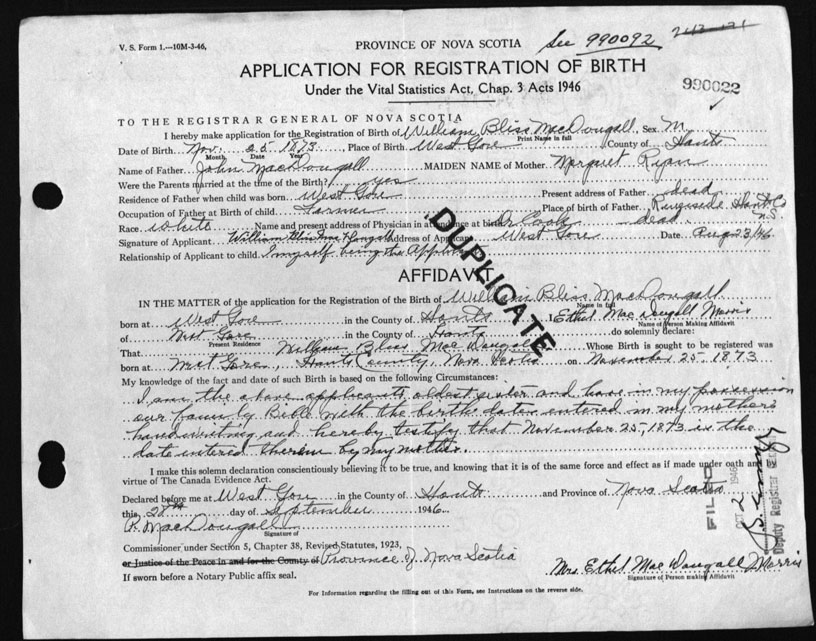 V. S. Form 1.—10M-3-46,
PROVINCE OF NOVA SCOTIA See 990092
APPLICATION FOR REGISTRATION OF BIRTH
Under the Vital Statistics Act, Chap. 3 Acts 1946
990022
TO THE REGISTRAR GENERAL OF NOVA SCOTIA
I hereby make application for the Registration of Birth of William Bliss MacDougall, Sex M.
Print Name in full
Date of Birth Nov. 25 1873, Place of Birth West Gore County of Hants
Month Date Year
Name of Father John MacDougall MAIDEN NAME of Mother Margaret Ryan
Were the Parents married at the time of the Birth? yes
Residence of Father when child was born West Gore Present address of Father dead
Occupation of Father at Birth of child Farmer Place of birth of Father Riverside Hants Co N.S.
Race White Name and present address of Physician in attendance at birth Dr Cook dead
Signature of Applicant William Bliss MacDougall Address of Applicant West Gore Date Aug 23/46
Relationship of Applicant to child. I myself being the Applicant
DUPLICATE
AFFIDAVIT
IN THE MATTER of the application for the Registration of the Birth of William Bliss MacDougall
Name in full
born at West Gore in the County of Hants I Ethel MacDougall Morris
Name of Person Making Affidavit
of West Gore in the County of Hants do solemnly declare:
Present Residence
That William Bliss MacDougall Whose Birth is sought to be registered was
born at West Gore, Hants County, Nova Scotia on November 25, 1873
My knowledge of the fact and date of such Birth is based on the following Circumstances:
I am the above applicants oldest sister and have in my possession
our family Bible with the birth dates entered in my mother's
handwriting and hereby testify that November 25, 1873 is the
date entered therein by my mother.
I make this solemn declaration conscientiously believing it to be true, and knowing that it is of the same force and effect as if made under oath and
virtue of The Canada Evidence Act.
Declared before me at West Gore in the County of Hants and Province of Nova Scotia
this 28th day of September 1946.
P. MacDougall
Signature of
Commissioner under Section 5, Chapter 38, Revised Statutes, 1923,
or Justice of the Peace in and for the County of Province of Nova Scotia
If sworn before a Notary Public affix seal.
Mrs. Ethel MacDougall Morris
Signature of Person making Affidavit
For Information regarding the filling out of this Form, see Instructions on the reverse side.
FILED
2 1946
Deputy Registrar